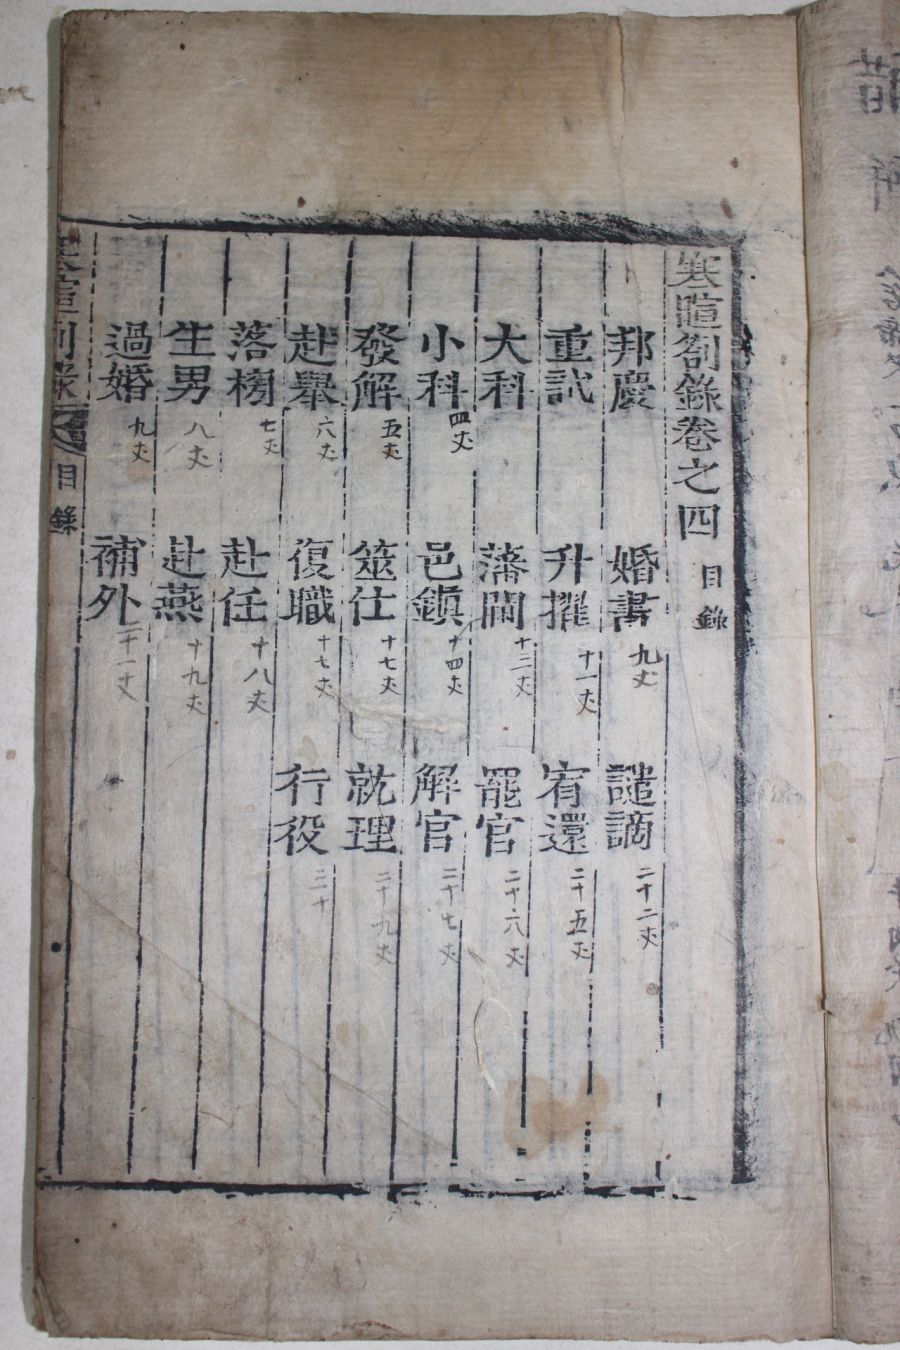 寒暄劄錄卷之四 目錄
邦慶 婚書 九丈 譴謫 二十二丈
重試 升擢 十一丈 宥還 二十五丈
大科 藩閫 十三丈 罷官 二十六丈
小科 四丈 邑鎭 十四丈 解官 二十七丈
發解 五丈 筮仕 十七丈 就理 二十九丈
赴擧 六丈 復職 十七丈 行役 三十
落榜 七丈 赴任 十八丈
生男 八丈 赴燕 十九丈
過婚 九丈 補外
目錄